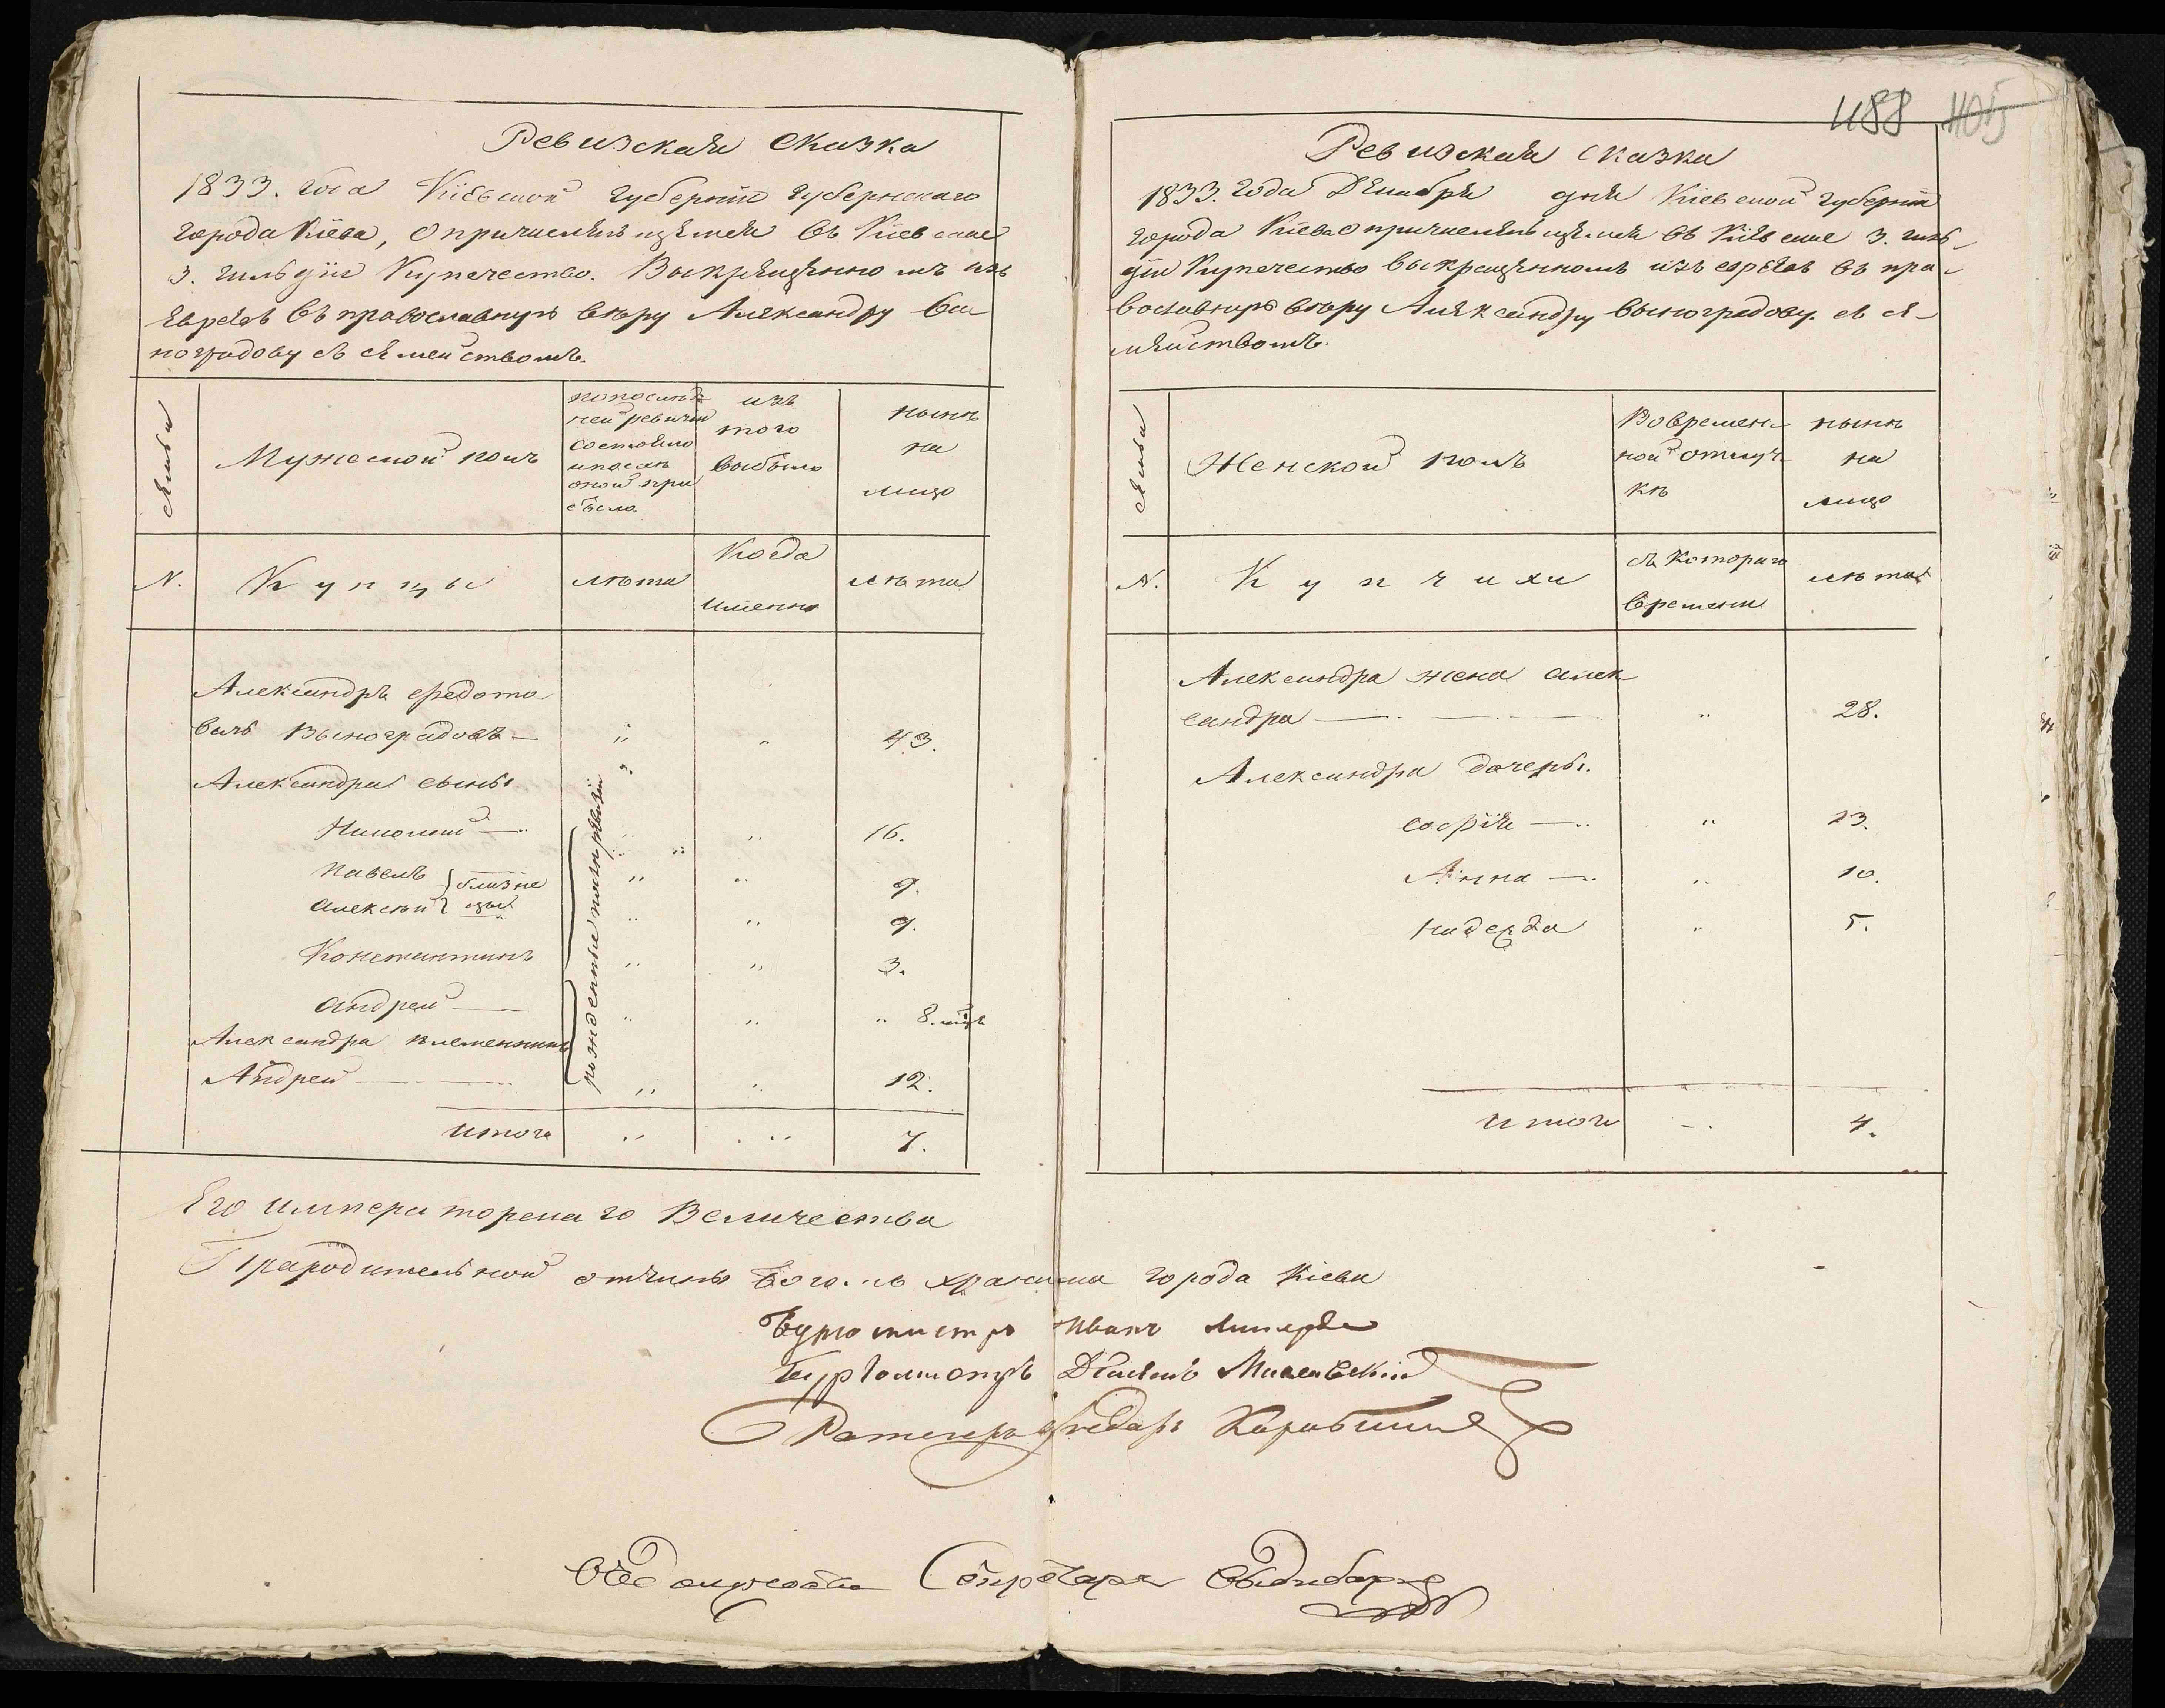 Ревизская Сказка
1833. Года Кіевской Губерніи Губернскаго
города Кіева, О причисляющемся въ Кіевское
3. гильдіи Купечество. Выкрещенномъ изъ
Евреевъ въ православную вѣру Александру Вы-
ноградову съ семействомъ.
семьи
Мужеской полъ
по послед-
ней ревизіи
состояло
и после
оной при
было.
изъ
того
выбыло
нынѣ
на
лицо
N.
Купцы
лѣта
Когда
именно
лѣта
Александръ Федото-
вичъ Выноградовъ — „ „ 43.
Александра сыны
Николай — „ „ 16.
Павелъ } близне „ „ 9.
Алексѣй } цы „ „ 9.
Константинъ „ „ 3.
Андрей — „ „ „ 8. мцъ
Александра племянникъ
Андрей — „ „ 12.
рожденные после ревизіи
итого „ „ 7.
488 405
Ревизская сказка
1833. Года Декабря дня Кіевской Губерніи
города Кіева О причисляющемся въ Кіевское 3. гиль-
діи Купечество выкрещенномъ изъ евреевъ въ пра-
вославную вѣру Александру Выноградову. съ се-
мействомъ.
семьи
Женской полъ
Во времен-
ной отлуч-
кѣ
нынѣ
на
лицо
N.
Купчихи
съ Котораго
времени
лѣта
Александра жена Алек-
сандра — „ 28.
Александра дочери.
Софія — „ 13.
Анна — „ 10.
Надежда „ 5.
итого - . 4.
Его Императорскаго Величества
Прародительной отчины Бого-хранима города Кіева
Бургомистръ Иванъ
Бургомистръ
Ратгеръ Федоръ
Въ должности Секретаря